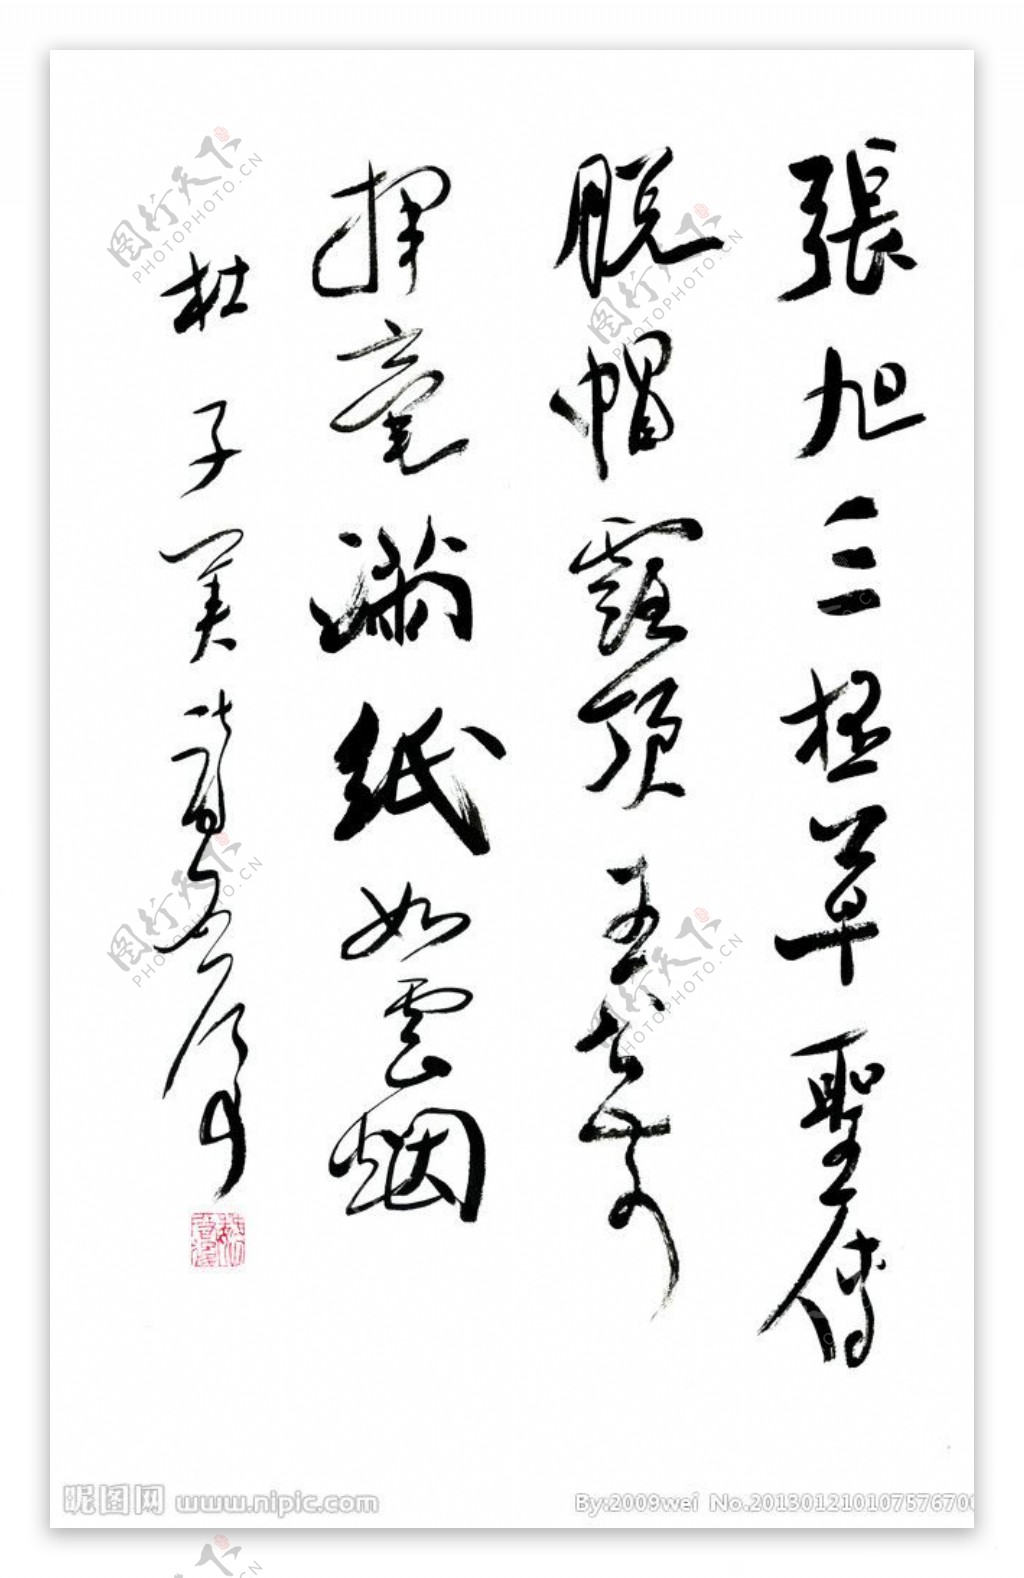 張旭三杯草聖傳
脫帽露頂王公前
揮毫滿紙如雲烟
杜子美詩
昵图网 www.nipic.com
By:2009wei No.20130121010757670
图行天下 PHOTOPHOTO.CN
图行天下 PHOTOPHOTO.CN
图行天下 PHOTOPHOTO.CN
图行天下 PHOTOPHOTO.CN